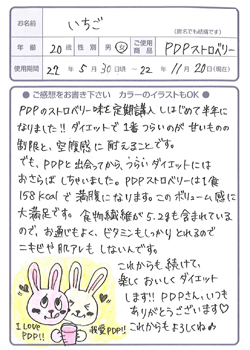 お名前 いちご
(匿名でも結構です)
年齢 20歳 男・女 ご使用商品 PDPストロベリー
使用期間 22年5月30日頃~22年11月20日(現在)
●ご感想をお書き下さい カラーのイラストもOK●
PDPのストロベリー味を定期購入しはじめて半年に
なりました!!ダイエットで1番つらいのが甘いものの
制限と、空腹感に耐えることです。
でも、PDPと出会ってから、つらいダイエットには
おさらばしちゃいました。PDPストロベリーは1食
158Kcalで満腹になります。このボリューム感に
大満足です。食物繊維が5.2gも含まれている
ので、お通じもよく、ビタミンもしっかりとれるので
ニキビや肌アレもしないんです。
これからも続けて、
楽しくおいしくダイエット
します!!PDPさん、いつも
ありがとうございます♡
これからもよろしくね♪
I LOVE
PDP!!
我愛PDP!!